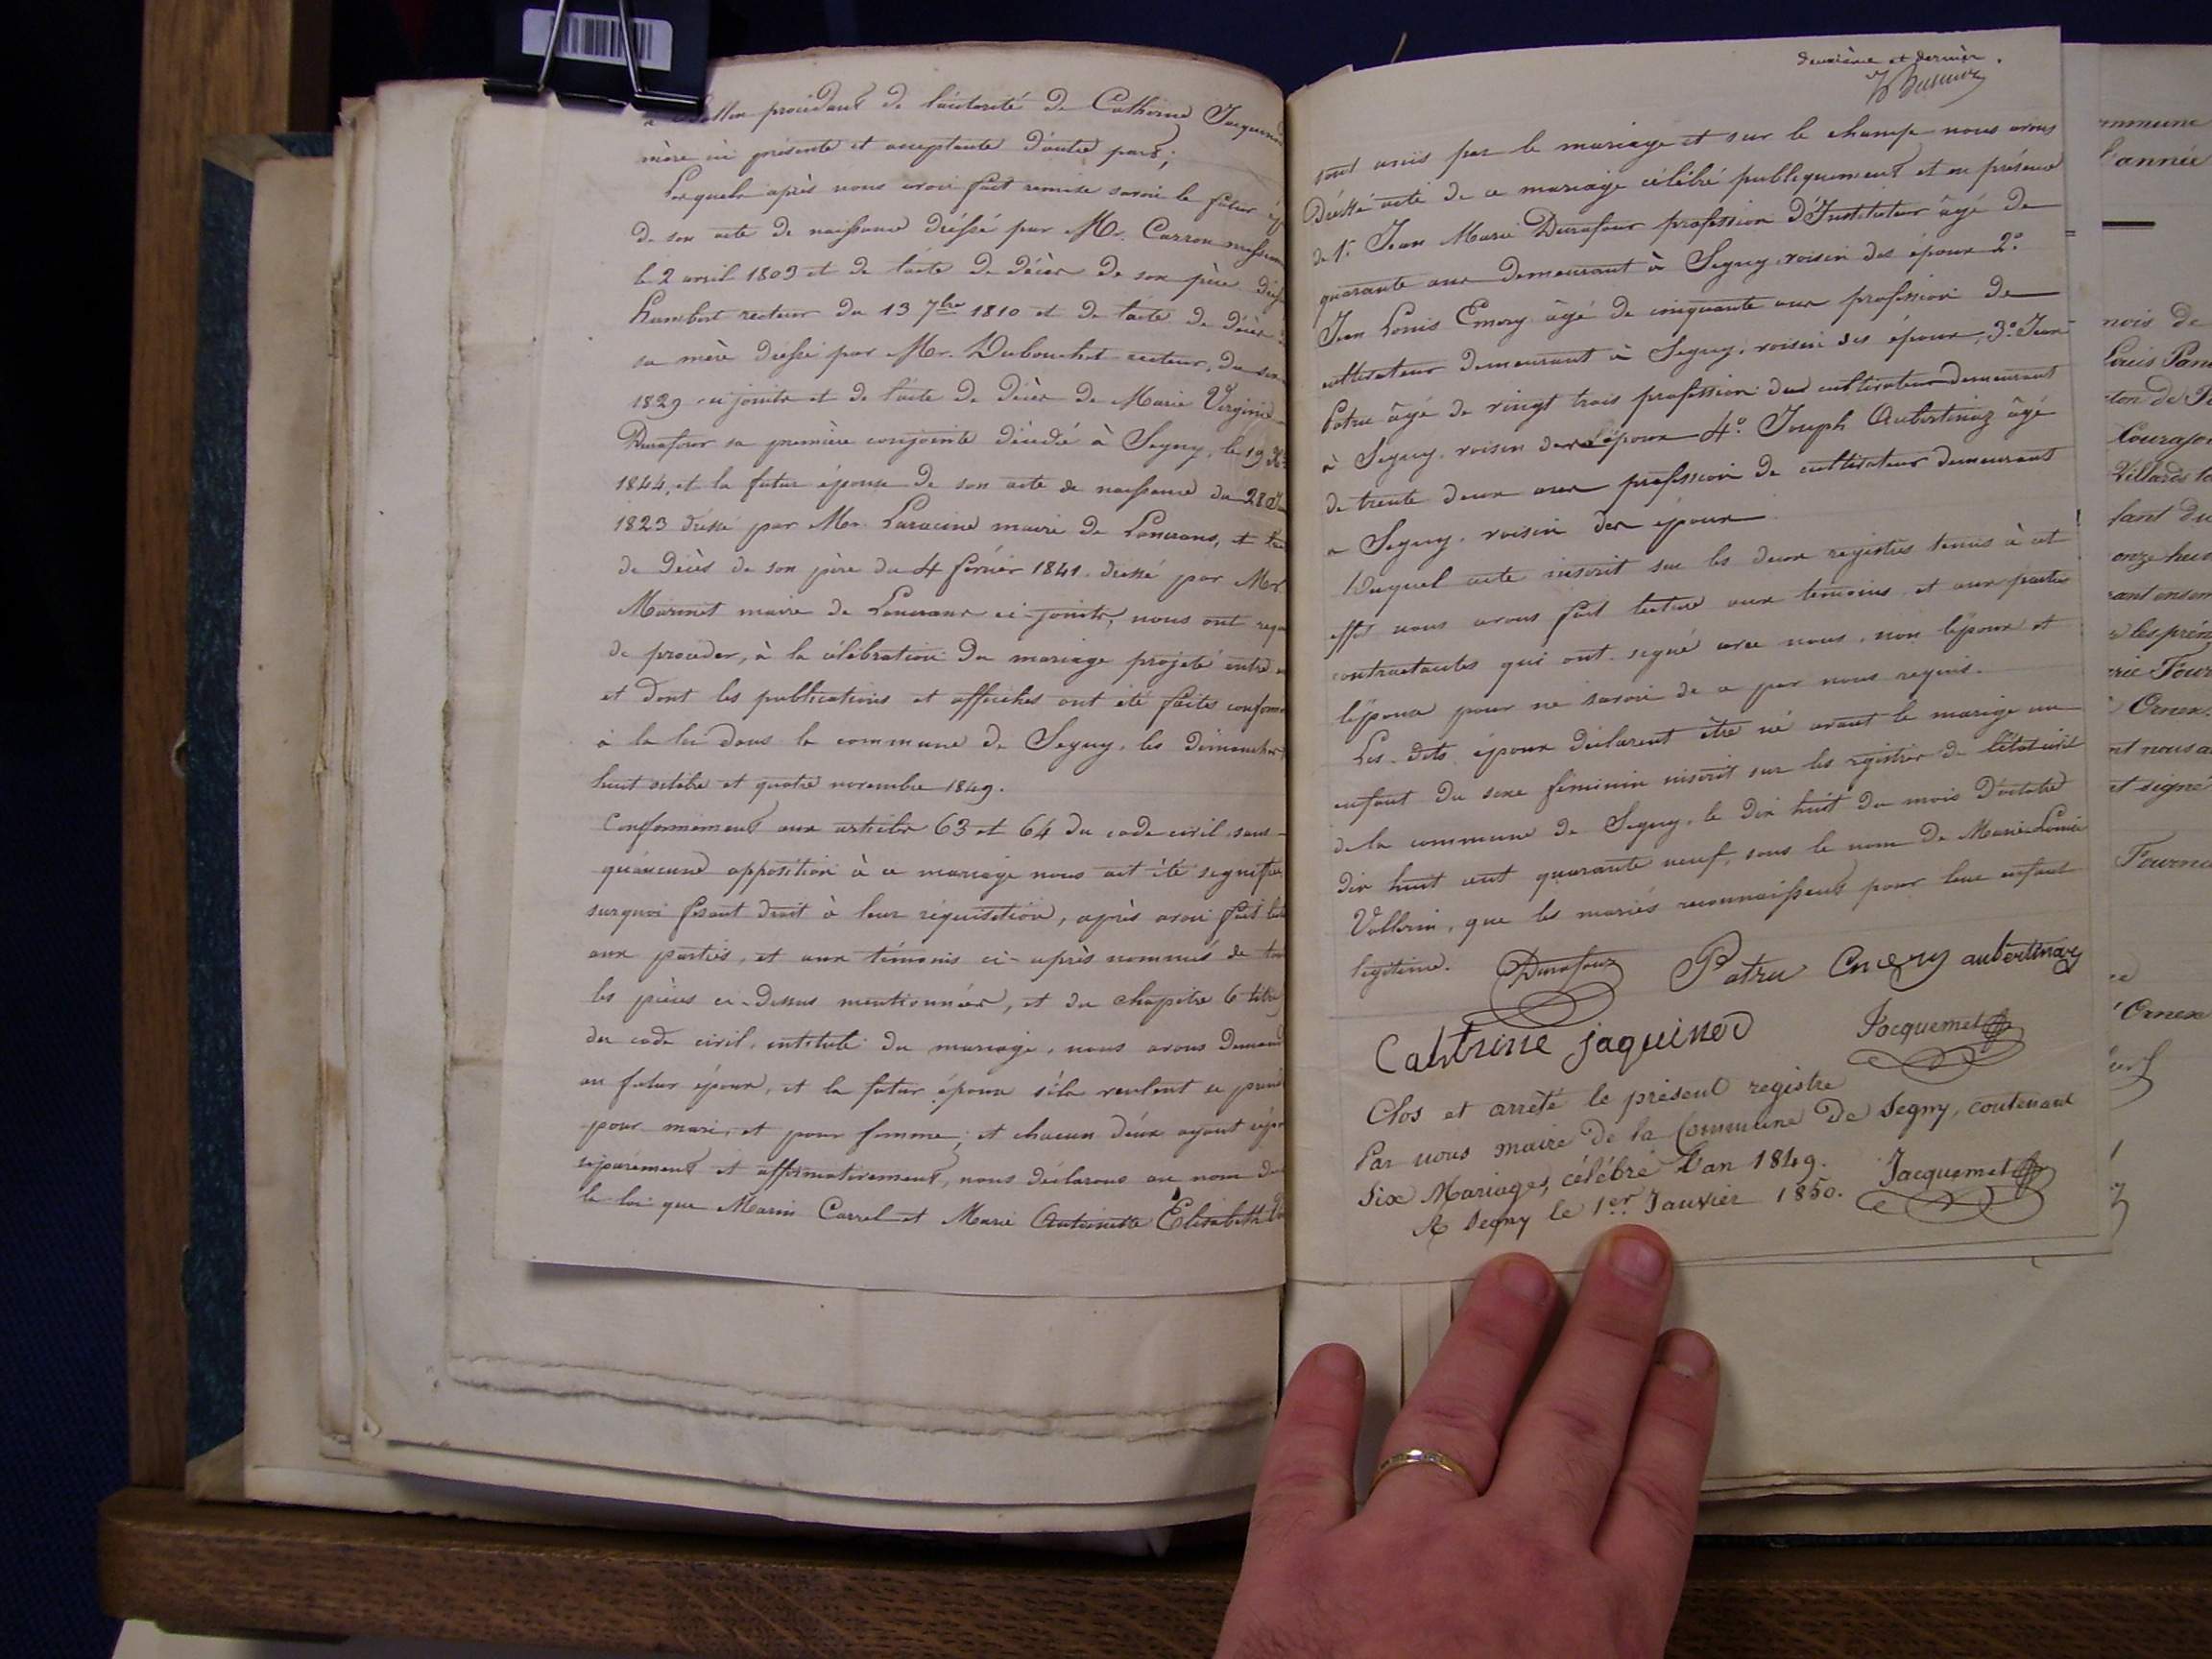 procédant de l'autorité de Catherine
mère ici présente et acceptante d'autre part;
Lesquels après nous avoir fait remise savoir le futur
de son acte de naissance dréssé par Mr. Carron
le 2 avril 1803 et de l'acte de décès de son père
Humbert recteur du 13 7bre 1810 et de l'acte de décès
sa mère dréssé par Mr. Dubouchet recteur, du
1829 ci joints et de l'acte de décès de Marie Virginie
Durafour sa première conjointe décédée à Segny, le 19
1844, et la futur épouse de son acte de naissance du 28
1823 dréssé par Mr. Laracine maire de Lancrans, et
de décès de son père du 4 février 1841. dressé par Mr.
Marinet maire de Lancrans ci-joints, nous ont
de procéder, à la célébration du mariage projeté entre
et dont les publications et affiches ont été faites
à la loi dans la commune de Segny, les dimanches
huit octobre et quatre novembre 1849.
Conformément aux articles 63 et 64 du code civil sans
qu'aucune opposition à ce mariage nous ait été
surquoi fesant droit à leur réquisition, après avoir fait
aux parties, et aux témoins ci-après nommés de
les pièces ci-dessus mentionnées, et du chapitre 6 titre
du code civil, intitulé du mariage, nous avons
au futur époux, et la futur épouse s'ils veulent se
pour mari, et pour femme; et chacun d'eux ayant
séparément et affirmativement, nous déclarons au nom de
la loi que Marin Carrel et Marie Antoinette Elisabeth
deuxième et dernier.
sont unis par le mariage et sur le champ nous avons
dréssé acte de ce mariage célébré publiquement et en présence
de 1° Jean Marie Durafour profession d'Instituteur âgé de
quarante ans demeurant à Segny, voisin des époux 2°.
Jean Louis Emery âgé de cinquante ans profession de
cultivateur demeurant à Segny, voisin des époux, 3° Jean
Patru âgé de vingt trois profession de cultivateur demeurant
à Segny, voisin de l'époux 4° Joseph Aubertinaz âgé
de trente deux ans profession de cultivateur demeurant
a Segny, voisin des époux
Duquel acte inscrit sur les deux registres tenus à cet
effet nous avons fait lecture aux témoins, et aux parties
contractantes qui ont signé avec nous, non l'époux et
l'épouse pour ne savoir de ce par nous requis.
Les dits époux déclarent être né avant le mariage un
enfant du sexe féminin inscrit sur les registres de l'état civil
de la commune de Segny, le dix huit du mois d'octobre
dix huit cent quarante neuf, sous le nom de Marie Louise
Vallerin, que les mariés reconnaissent pour leur enfant
légitime. Durafour Patru Emery aubertinaz
Cathrine jaquinod Jacquemet
Clos et arrêté le présent registre
Par nous maire de la Commune De Segny, contenant
Six Mariages, célébré L'an 1849. Jacquemet
A Segny le 1er. Janvier 1850.
l'année
mois de
Louis
Villards
onze
les
Ornex
et signé
Ornex